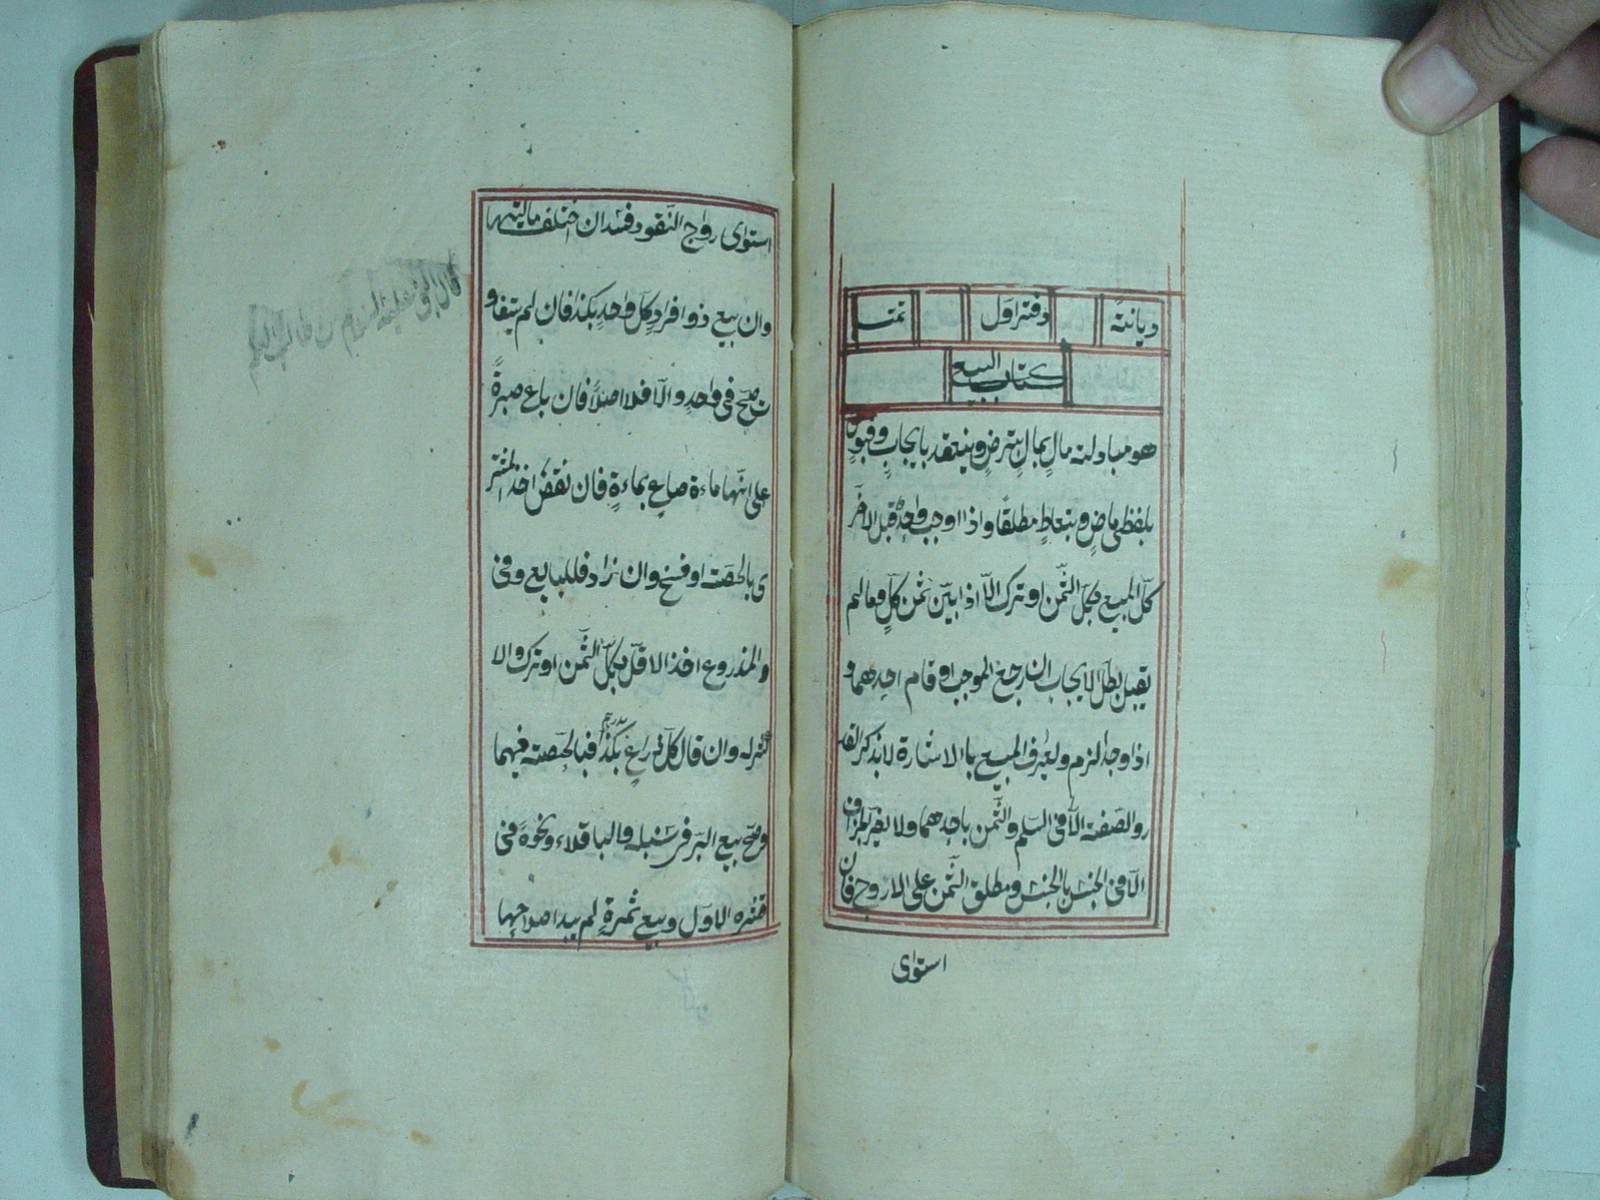 ديانتهً دفتر اول تمت
كتاب البيع
هو مبادلة مالٍ بمالٍ بترضٍ وينعقد بايجابٍ وقبولٍ
بلفظى ماضٍ وبتعاطٍ مطلقًا واذا اوجب واحدٌ قبل الاخر
كلّ المبيع بكلّ الثّمن او ترك الّا اذا بيّن ثمن كلٍّ وما لم
يقبل بطل الايجاب ان رجع الموجب او قام احدهما و
اذا وجدا لزم ولعرف المبيع باالاشارة لا بذكر القد
ر والصفة الّا فى السّلم والثّمن باحدهما ولا يضرّ الجزاف
الّا فى الجنس بالجنس ومطلق الثّمن على الاروج فان
استوى
استوى رواج النّقود فسد ان اختلف ماليتها
وان بيع ذو افرادٍ كلّ واحدٍ بكذا فان لم يتفاو
ت صحّ فى واحدٍ والّا فلا اصلًا فان باع صبرةً
على انّها ماءة صاعٍ بماءةٍ فان نقض اخذ المشتر
ى بالحصّة او فسخ وان زاد فللبايع وفى
المذروع اخذ الاقلّ بكلّ الثّمن او ترك والا
كثر له وان قال كلّ ذراعٍ بكذا بدرهم فبا لحصّة فيهما
وصحّ بيع البرّ فى سنبله والباقلاء ونحوه فى
قشره الاوّل وبيع ثمرةٍ لم يبد اصلاحها
قال النبى عليه السلام